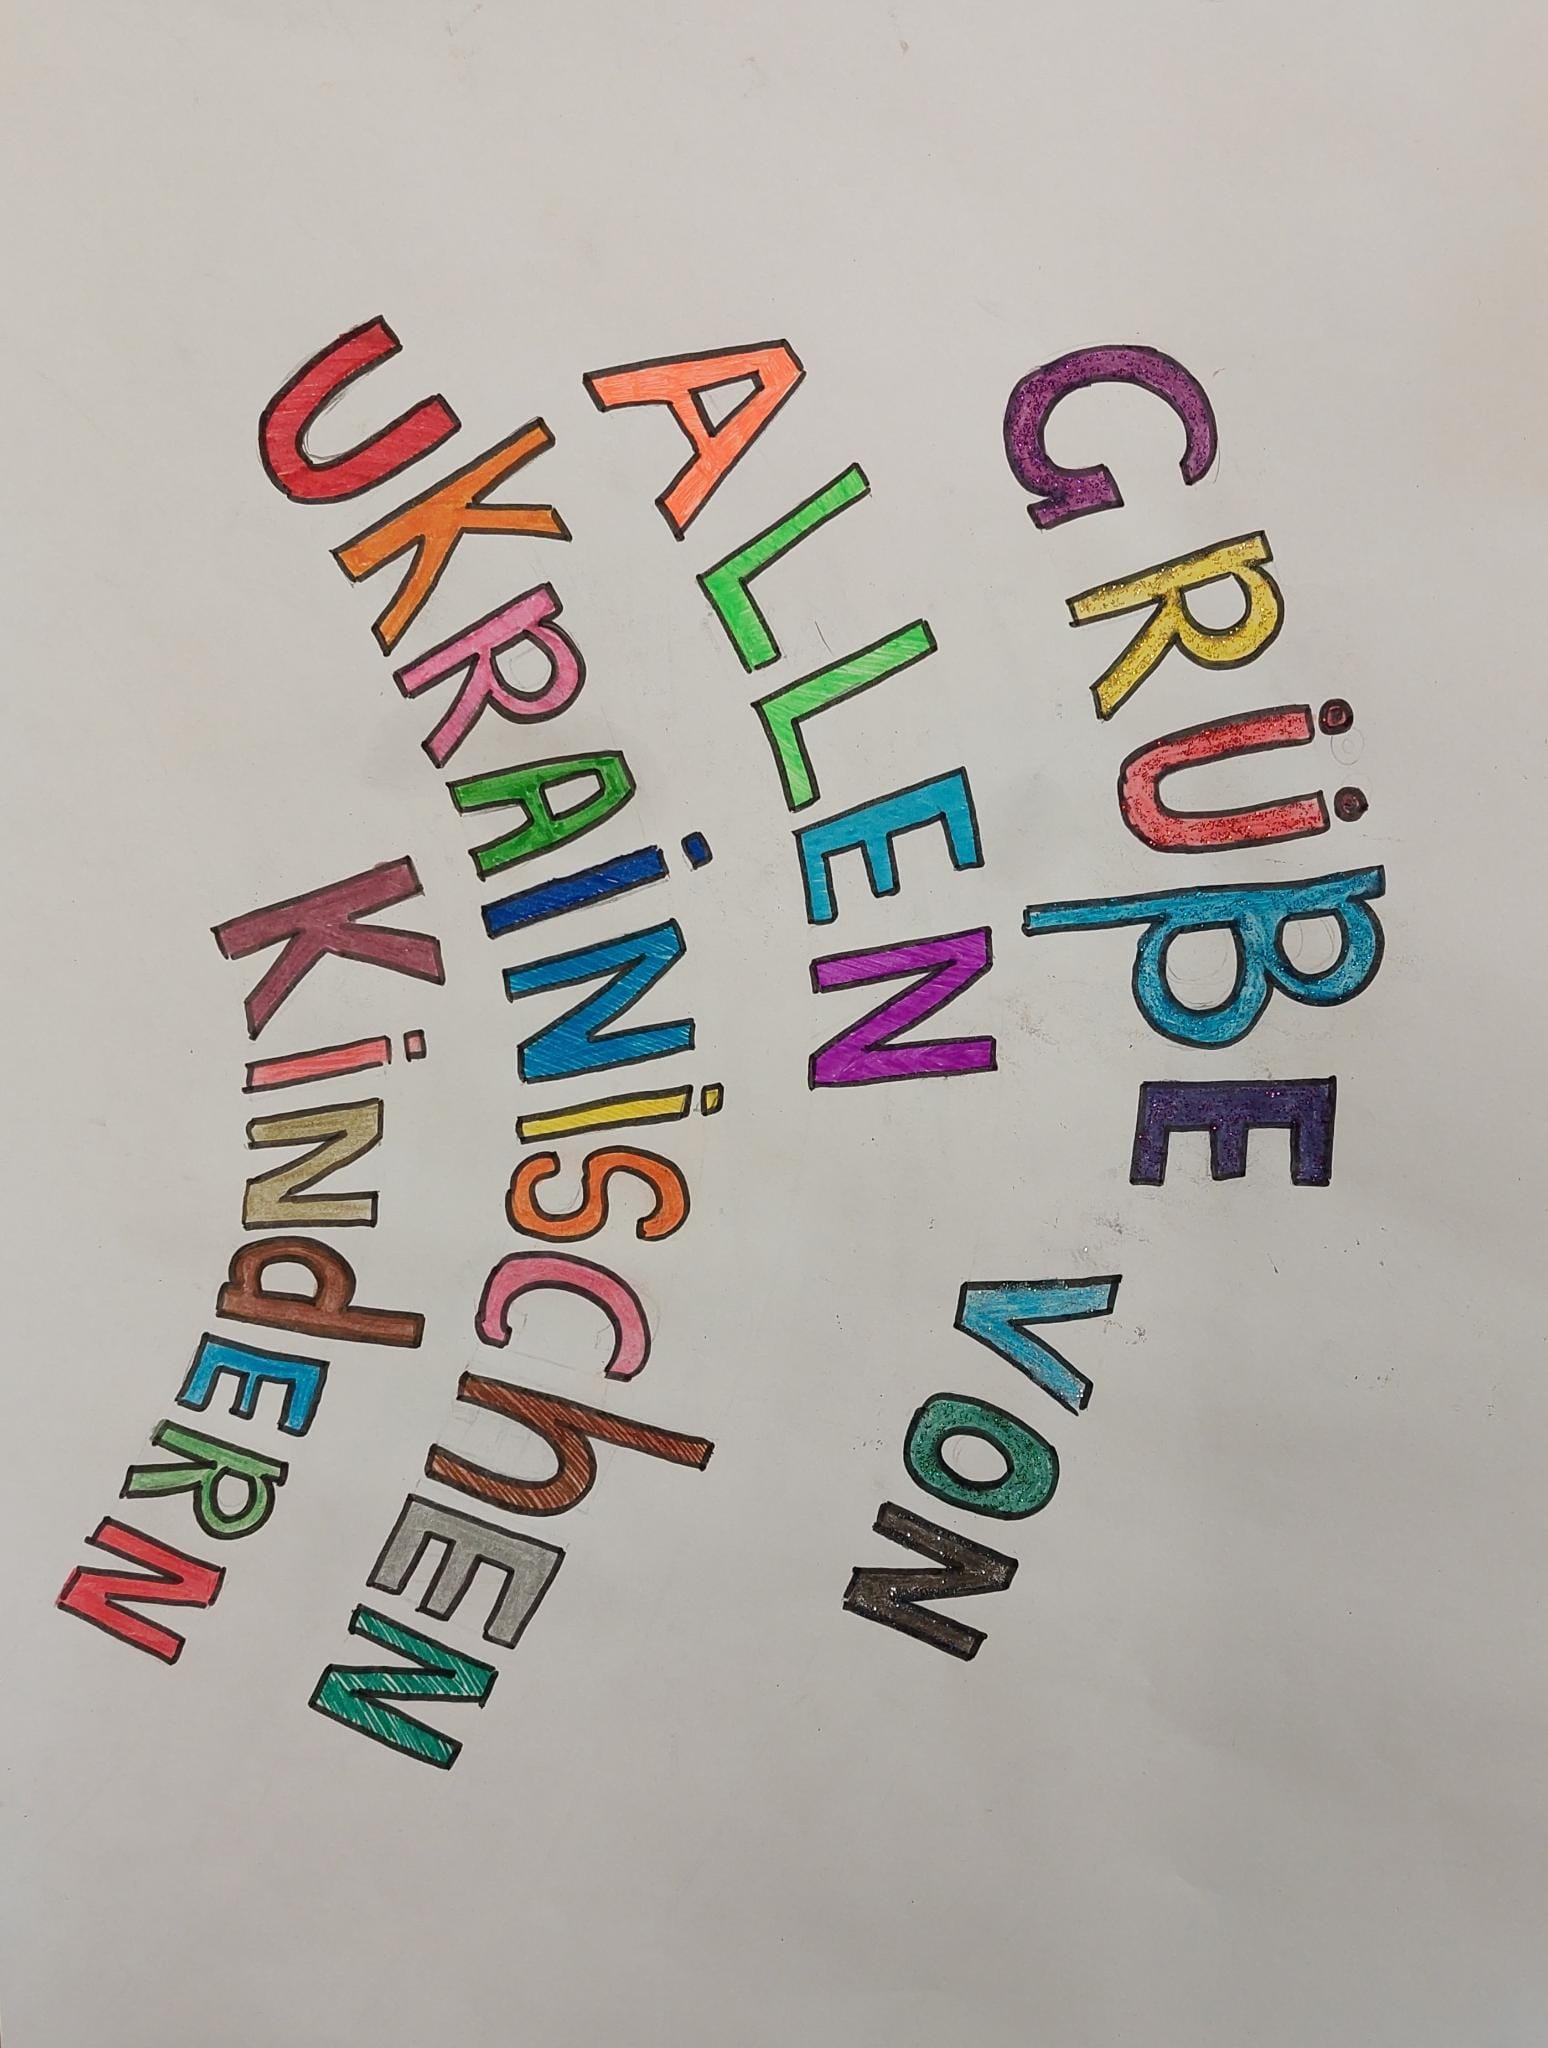 GRÜßE VON
ALLEN
UKRAiNiSChEN
KiNdERN